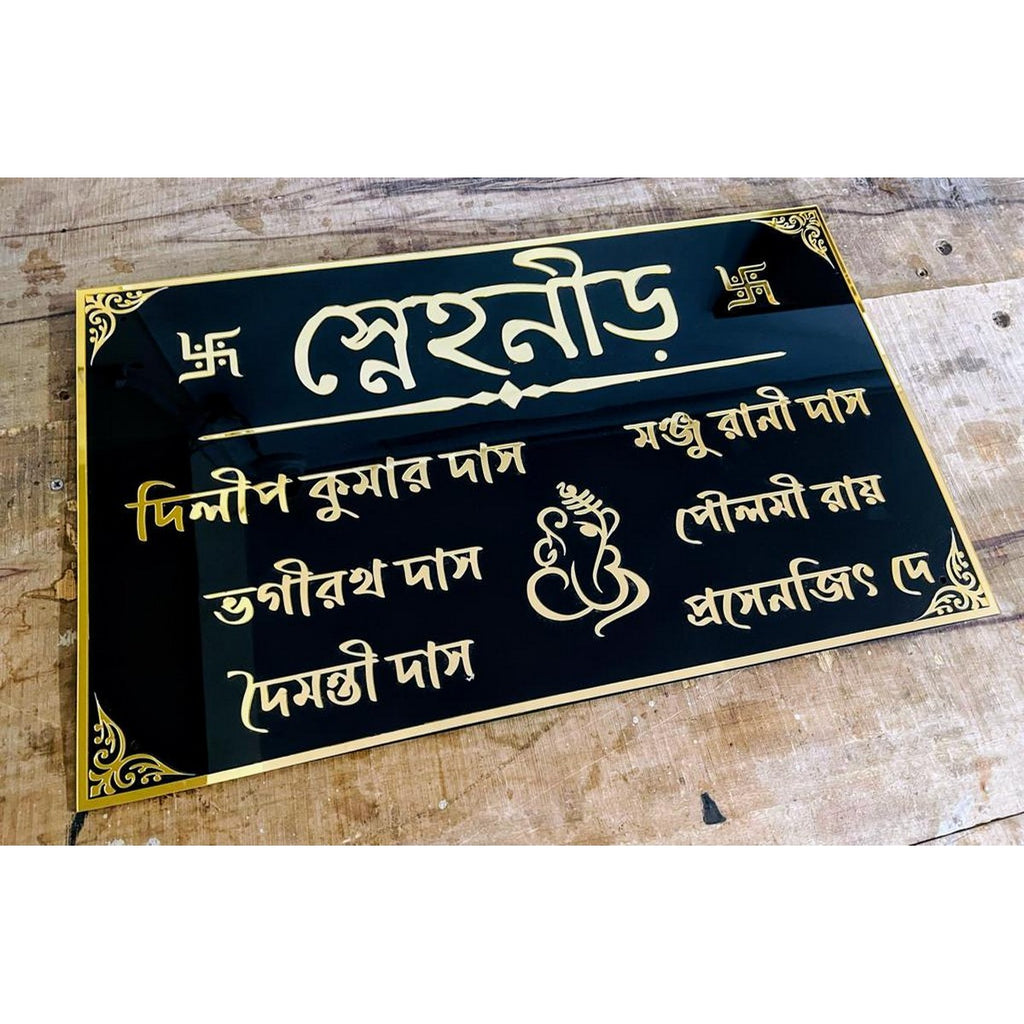 স্নেহনীড়
দিলীপ কুমার দাস
মঞ্জু রানী দাস
ভগীরথ দাস
পৌলমী রায়
দৈমন্তী দাস
প্রসেনজিৎ দে